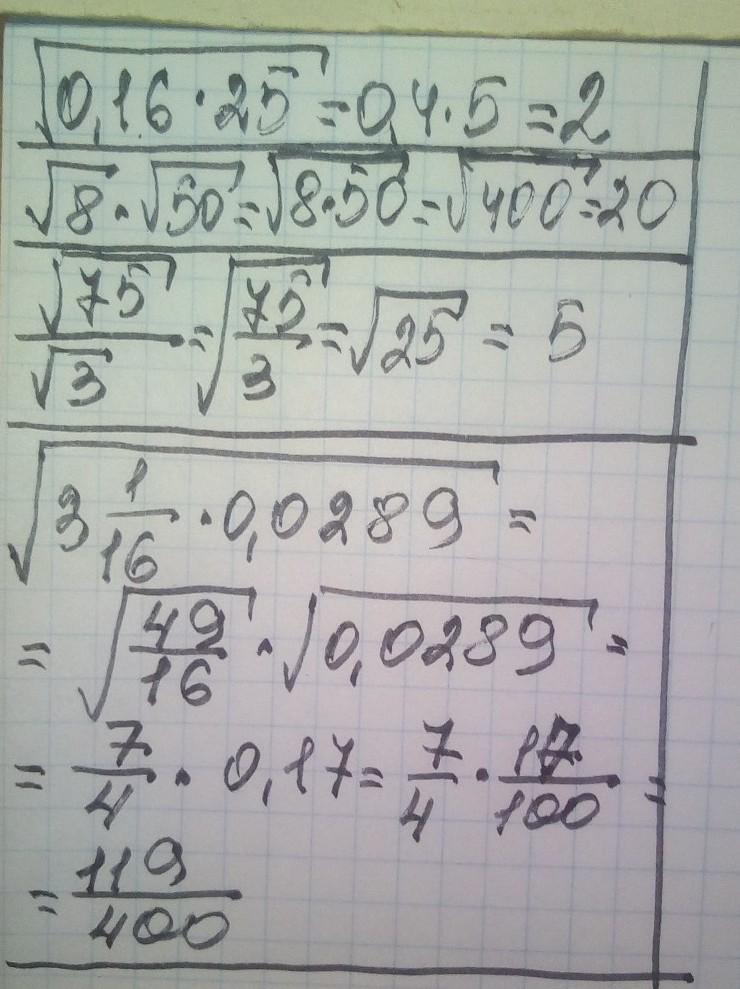 √0,16·25 = 0,4·5 = 2
√8·√50 = √8·50 = √400 = 20
√75/√3 = √75/3 = √25 = 5
√3 1/16 · 0,0289 =
= √49/16 · √0,0289 =
= 7/4 · 0,17 = 7/4 · 17/100 =
= 119/400